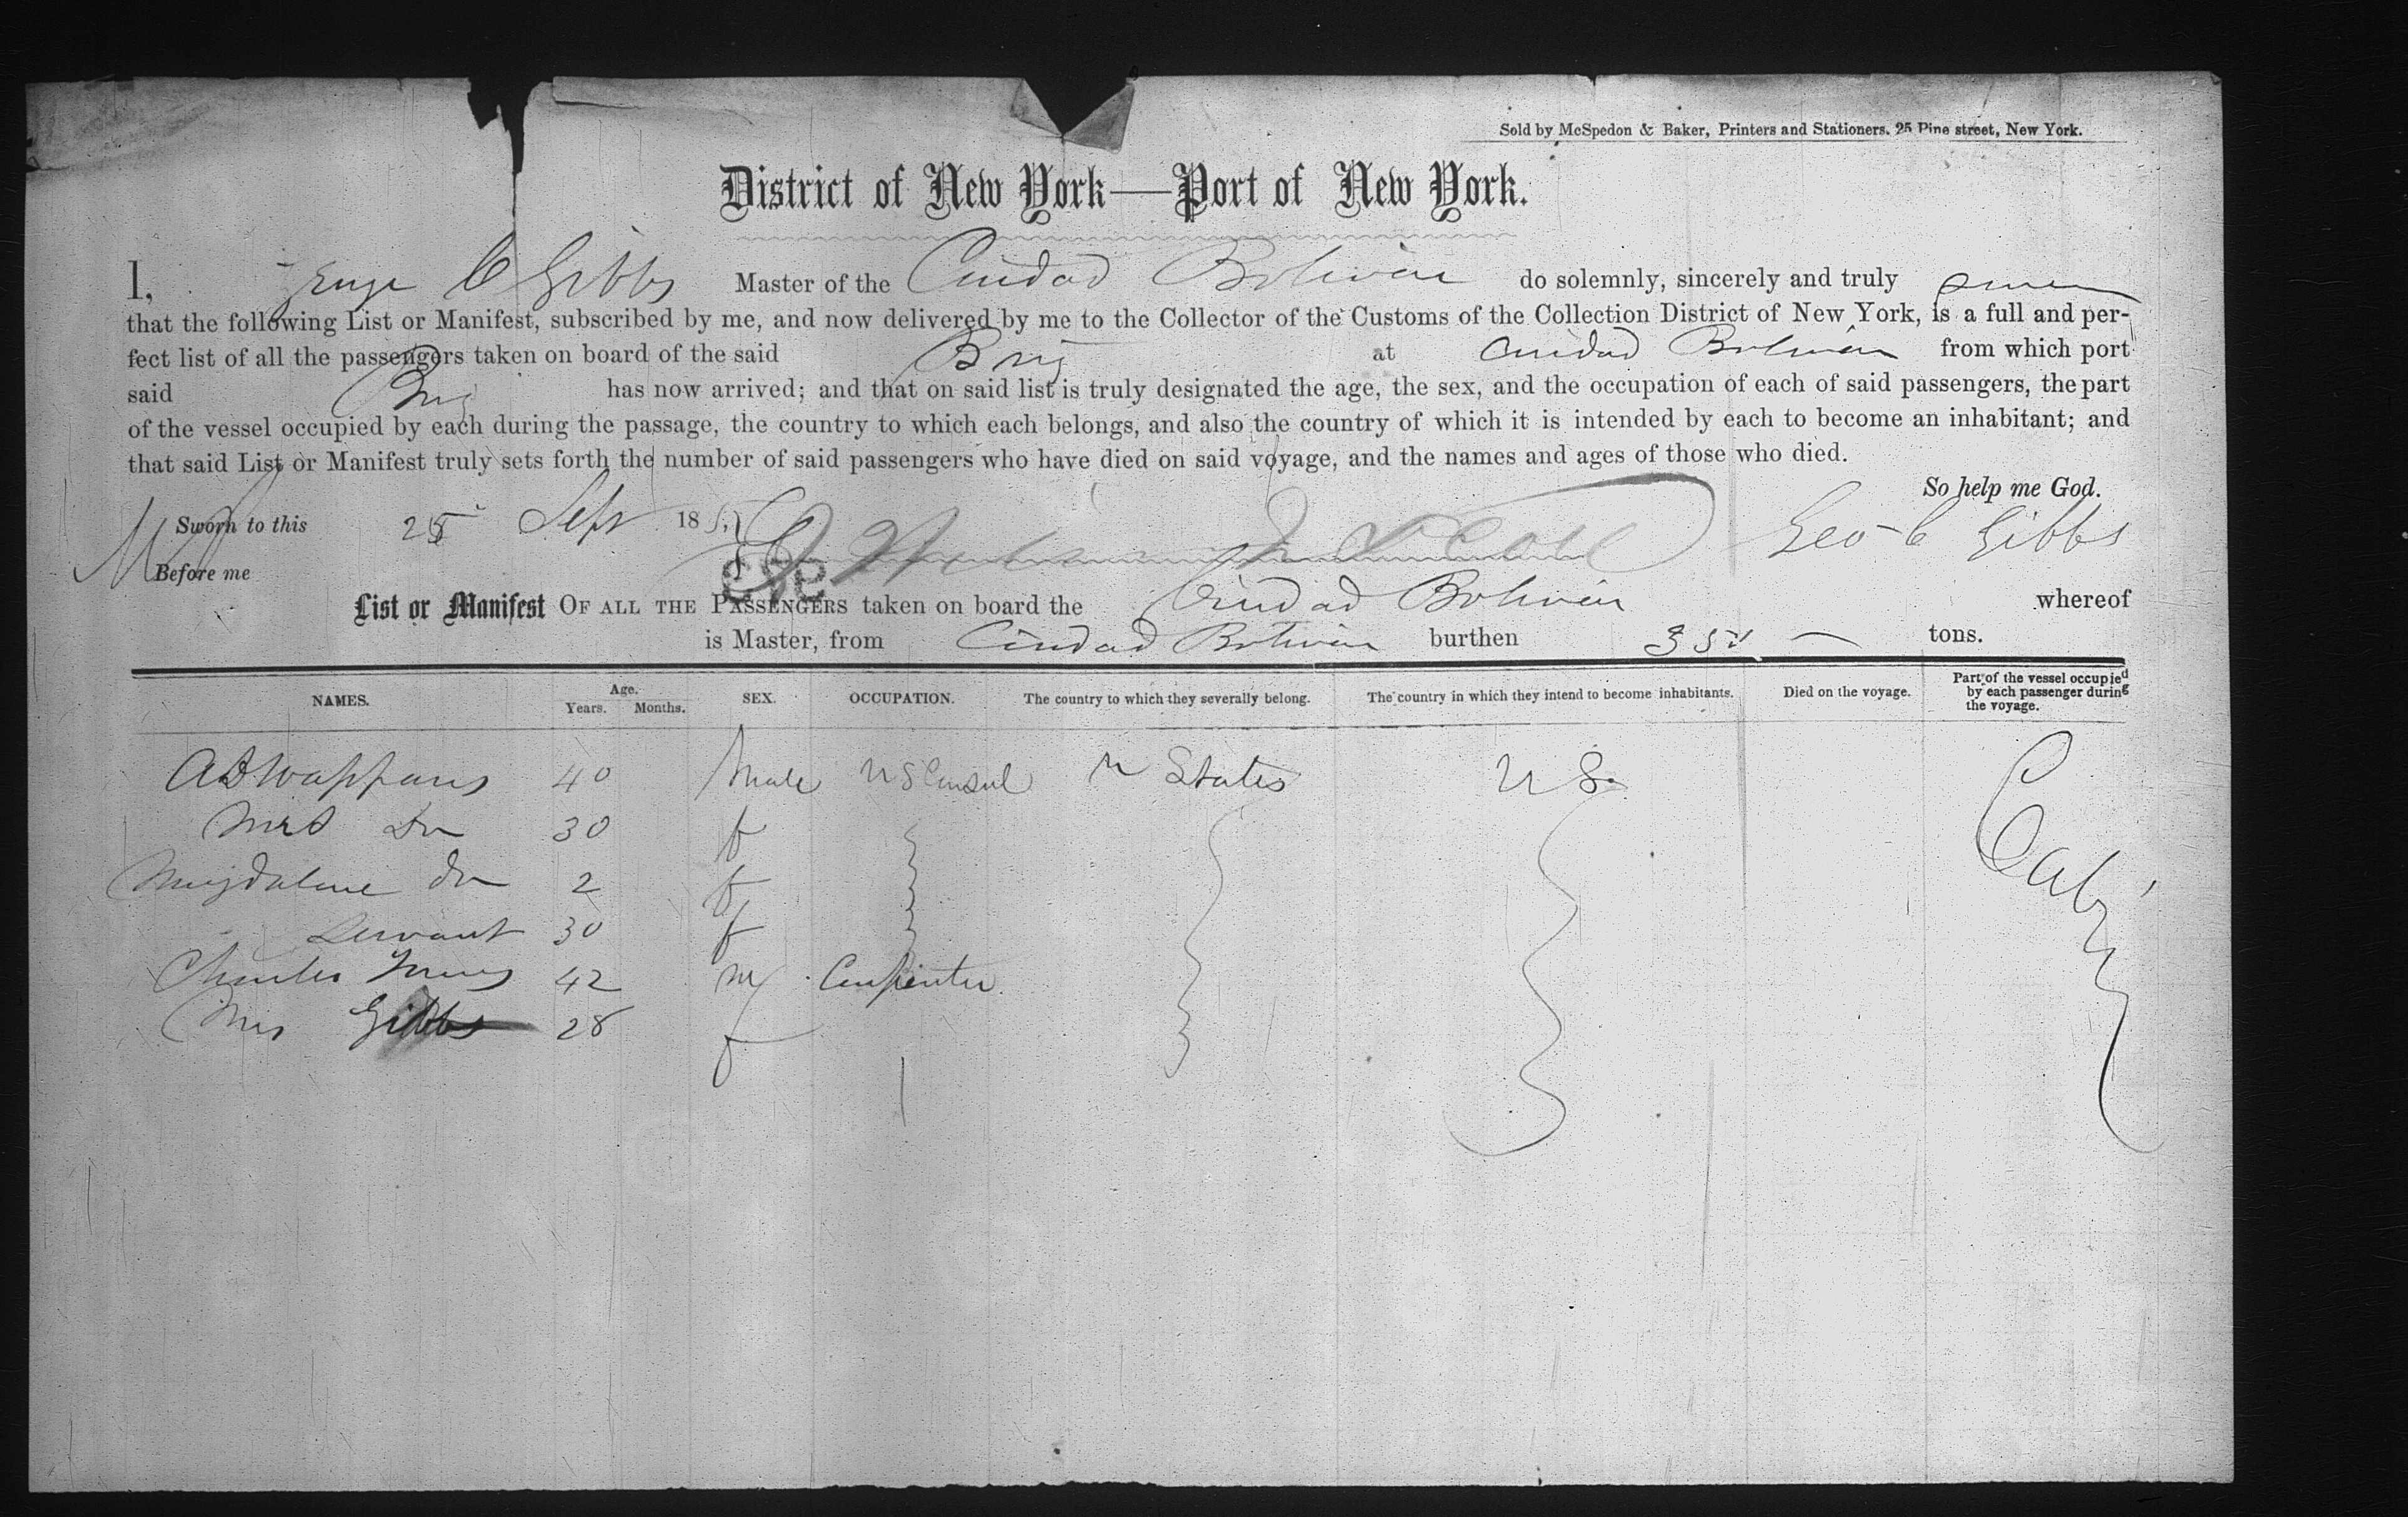 Sold by McSpedon & Baker, Printers and Stationers. 25 Pine street, New York.
District of New York—Port of New York.
I, George C Gibbs Master of the Ciudad Bolivar do solemnly, sincerely and truly swear
that the following List or Manifest, subscribed by me, and now delivered by me to the Collector of the Customs of the Collection District of New York, is a full and per-
fect list of all the passengers taken on board of the said Brig at Ciudad Bolivar from which port
said Brig has now arrived; and that on said list is truly designated the age, the sex, and the occupation of each of said passengers, the part
of the vessel occupied by each during the passage, the country to which each belongs, and also the country of which it is intended by each to become an inhabitant; and
that said List or Manifest truly sets forth the number of said passengers who have died on said voyage, and the names and ages of those who died.
So help me God.
Sworn to this 25 Sept 185 Geo C Gibbs
Before me
943
List or Manifest OF ALL THE PASSENGERS taken on board the Ciudad Bolivar whereof
is Master, from Ciudad Bolivar burthen tons.
NAMES. Age. Years. Months. SEX. OCCUPATION. The country to which they severally belong. The country in which they intend to become inhabitants. Died on the voyage. Part of the vessel occupied by each passenger during the voyage.
40 Male U S Consul U States U S. Cabin
Mrs Do 30 f
Magdalene Do 2 f
Servant 30 f
Charles 42 M Carpenter
Mrs Gibbs 28 f